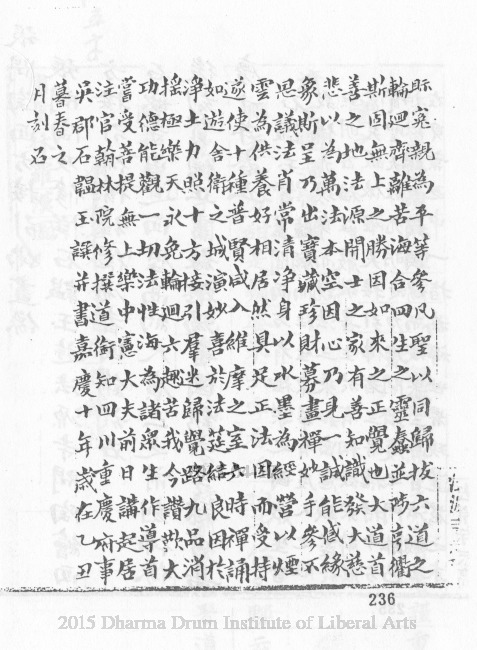 眎寃親為平等參凡聖以同歸拔六道之
輪迴齊離苦海合四生之靈蠢並陟亨衢
斯因無上之勝因如來之正覺也大道首
善之地法源開士之家有善知識發大慈
悲以為萬法本空因心乃見一誠能感緣
象斯呈乃出寶藏珍財募畫禪妙手參不
思議法肖常清淨身以水墨為經營以煙
雲為供養好相居然具足正法因而受持
遂使十種普賢咸入維摩之室六時禪誦
如遊舍衛之城演妙喜於法筵結良因於
淨土力照十方接引羣迷歸覺路九品消
搖極樂天永免輪迴六趣苦我今讚歎大
功德能觀一切法性海為諸衆生作導首
嘗受菩提無上樂中憲大夫前日講起居
注官翰林院修撰道銜知四川重慶府事
吳郡石韞玉譔并書嘉慶十年歲在乙丑
暮春之
月刻石
236
2015 Dharma Drum Institute of Liberal Arts